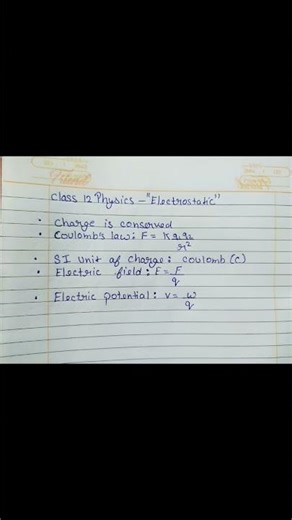 Class 12 Physics - "Electrostatic"
• Charge is conserved
• Coulomb's law: F = K q₁q₂/r²
• SI Unit of charge: coulomb (C)
• Electric field: E = F/q
• Electric potential: V = w/q